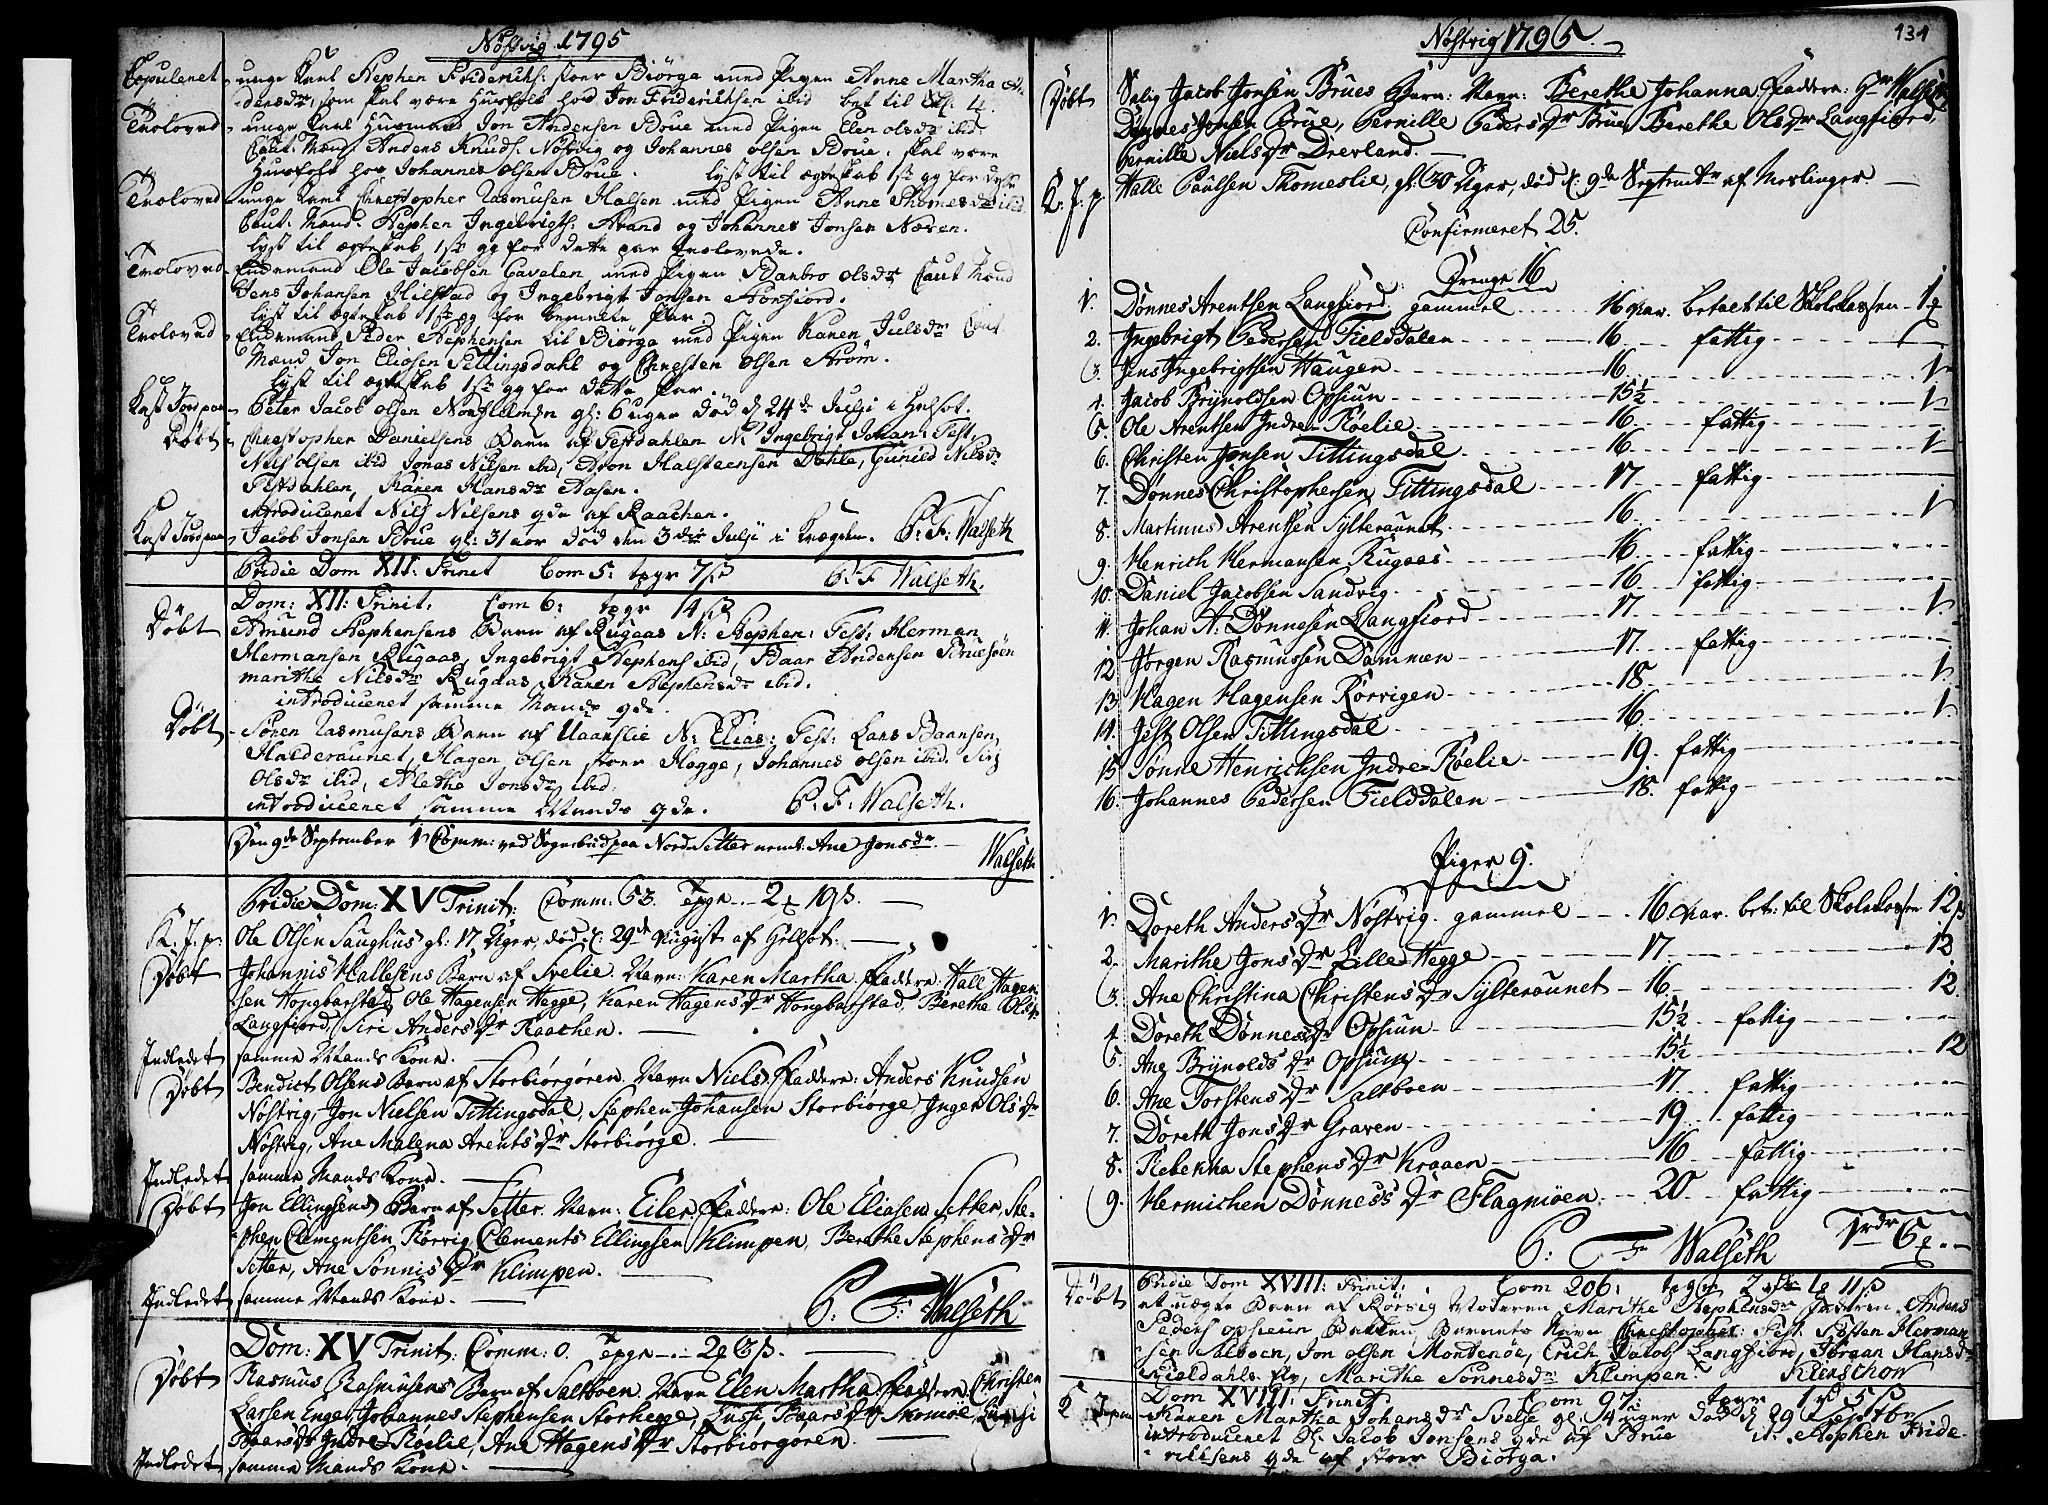 Nøstvig 1795
Copuleret unge Karl Stephen Friderichs: stoer Biørga med Pigen Anne Martha
densdr, som skal være Huusfolk hos Jon Friderichsen ibid bet til
Troloved unge Karl Huusmand Jon Andersen Boue med Pigen Elen olsdr ibid
Caut: Mænd Anders Knuds: Nøstvig og Johannes olsen Boue. skal være
Huusfolk hos Johannes olsen Boue. lyst til ægteskab 1ste gg for
Troloved unge Karl Christopher Rasmusen Halsen med Pigen Anne Thomesdr ibid
Caut: Mænd Stephen Ingebrigts: Strand og Johannes Jonsen Noren.
lyst til ægteskab 1ste gg for dette par trolovede.
Troloved Enkemand Ole Jacobsen Gavelen med Pigen Barbro olsdr Caut Mænd
Jens Johansen Hilstad og Ingebrigt Jonsen Storfiord.
lyst til ægteskab 1ste gg for bemelte Par
Trolovud Enkemand Peder Stephensen lil Biørga med Pigen Karen Julsdr Caut.
Mænd Jon Eliasen Tettingsdahl og Christen olsen Strøm.
lyst til ægteskab 1ste gg for dette Par
Kast Jord paa Peter Jacob olsen gl: 6 uger død d 24de Julji i Helsot.
Døbt Christopher Danielsens Barn af Testdahlen N: Ingebrigt Johan: Test,
Nils olsen ibid Jonas Nilsen ibid, Aron Halsteensen Dahle, Gunild Nilsdr
Testdahlen, Karen Hansdr Aasen.
introduceret Nils Nilsens qde af Raachen.
Kast Jord paa Jacob Jonsen Boue gl: 31 aar død den 3die Julji i Krægden. P: F: Walseth
Pridie Dom XII: Trinit Com 5: tpgr 7 ß P. F Walseth.
Dom: XII: Trinit: Com 6: tpgr 14 ß
Døbt Amund Stephensens Barn af Rugaas N: Stephen: Test: Herman
Hermansen Rugaas, Ingebrigt Stephens ibid, Baar Andersen Bruesøen
marithe Nilsdr Rugaas, Karen Stephensdr ibid.
introduceret samme Mands qde
Døbt Søren Rasmusens Barn af Vaanslie N: Elias: Test: Lars Baarsen
Halderaunet, Hagen olsen stoer Hegge, Johannes olsen ibid. Siri
Olsdr ibid, Alethe Jonsdr ibid.
introduceret samme Mands qde. P. F: Walseth.
Den 9de September 1 Comm: ved Sognebud paa Nord Setter neml: Ane Jonsdr. Walseth
Pridie Dom: XV Trinit: Comm: 63. Tpgr 2 10 ß.
K. J. p: Ole Olsen Saughus gl: 17 Uger, død d: 29de August af Helsot.
Døbt Johannis Hallesens Barn af Svelie. Navn: Karen Martha. Faddere: Halle Hagen-
sen Hongbarstad, Ole Hagensen Hegge, Karen Hagens Dr Hongbarstad, Berethe Ols Dr
Langfiord, Siri Anders Dr Raachen.
Indledet samme Mands Kone.
Døbt Bendict Olsens Barn af Storbiørgøren. Navn Niels. Faddere: Anders Knudsen
Nøstvig, Jon Nielsen Tittingsdal, Stephen Johansen Storbiørge, Inger Ols Dr
Nøstvig, Ane Malena Arents Dr Storbiørge.
Indledet samme Mands Kone.
Døbt Jon Ellingsens Barn af Setter. Navn: Eiler, Faddere: Ole Eliasen Setter, Ste-
phen Clementsen Rørvig, Clements Ellingsen Klimpen, Berethe Stephens Dr
Setter, Ane Sønnis Dr Klimpen.
Indledet samme Mands Kone. P: F: Walseth
Dom: XV Trinit: Comm: 0. Tpgr 2 6 ß.
Døbt Rasmus Rasmusens Barn af Saltbøen. Navn Elen Martha. Faddere: Christen
Larsen Enge, Johannes Stephensen Storhegge, Lussi Baars Dr Skomoe, Lussi
Baars Dr Indre Røelie, Ane Hagens Dr Storbiørgøren.
Indledet samme Mands Kone.
Nøstvig 1795. 131
Døbt Salig Jacob Jonsen Brues Barn: Navn: Berethe Johanna Faddere: Hr Walseth
Dønnes Jonsen Brue, Pernille Peders Dr Brue, Berethe Ols Dr Langfiord,
Pernille Niels Dr Drevland.
K. J. p. Halle Paulsen Thomeslie, gl: 30 Uger, død d: 9de Septembr af Meslinger.
Confirmeret 25.
Drenge 16
1. Dønnes Arentsen Langfiord gammel 16 Aar. betalt til Skolekassen 1
2. Ingebrigt Pedersen Fielddalen 16 fattig
3. Jens Ingebrigtsen Haugen 16 1
4. Jacob Brynoldsen Opsiun 15½ 1
5. Ole Arentsen Indre Røelie 16 fattig
6. Christen Jonsen Tittingsdal 16 1
7. Dønnes Christophersen Tittingsdal 17 fattig
8. Martinus Arentsen Sylteraunet 16 1
9. Henrich Hermansen Rugaas 16 fattig
10. Daniel Jacobsen Sandvig 16 fattig
11. Johan A: Dønnesen Langfiord 17 1
12. Jørgen Rasmussen Dammen 17 fattig
13. Hagen Hagensen Rørvigen 18 1
14. Jest Olsen Tittingsdal 16 1
15. Sønne Henrichsen Indre-Røelie 19. fattig
16. Johannes Pedersen Fielddalen 18. fattig
Piger 9.
1. Doreth Anders Dr Nøstvig. gammel 16 Aar. bet: til Skolekassen 12 ß
2. Marithe Jons Dr Lille Hegge 17 12
3. Ane Christina Christens Dr Sylteraunet 16 12.
4. Doreth Dønnes Dr Opsiun 15½ fattig
5. Ane Brynolds Dr Opsiun 15½ 12
6. Ane Torstens Dr Saltboen 17 fattig
7. Doreth Jons Dr Graven 19 fattig
8. Rebekka Stephens Dr Kraaen 16 fattig
9. Hermichen Dønness Dr Flagmøen 20 fattig
P: F: Walseth 6
Døbt Pridie Dom XVIII: Trinit: Com 206: 2 11 ß
et uægte Barn af Rørvig Moderen Marithe Stephensdr Faderen Anders
Peders opsiun Bakken, Barnets Navn Christopher: Test: Tosten Herman
sen Salboen, Jon olsen Mordenøe, Erich Jacobs Langfiord, Jøran Hansdr
Fieldahls, Marithe Sønnesdr Klimpen. Kierschow
Dom XVIII: Trinit Com 97: tpgr 1 5 ß
K J paa Karen Martha Johansdr Svelse gl: 4 uger død d 29 Septbr
introduceret Sl: Jacob Jonsens qde af Brue it. Stephen Fride-
rikksens qde af stoer Biørga.